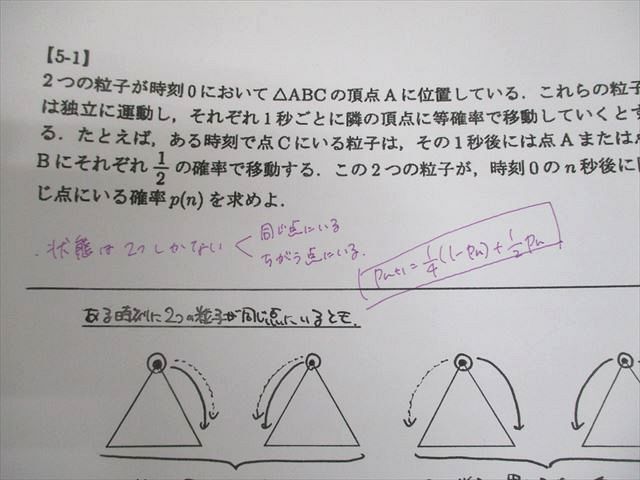 【5-1】
2つの粒子が時刻0において△ABCの頂点Aに位置している．これらの粒子
は独立に運動し，それぞれ1秒ごとに隣の頂点に等確率で移動していくとす
る．たとえば，ある時刻で点Cにいる粒子は，その1秒後には点Aまたは点
Bにそれぞれ 1/2 の確率で移動する．この2つの粒子が，時刻0のn秒後に同
じ点にいる確率p(n)を求めよ．
・状態は2つしかない
同じ点にいる
ちがう点にいる．
Pn+1 = 1/4(1-Pn) + 1/2 Pn
ある時刻に2つの粒子が同じ点にいるとき，